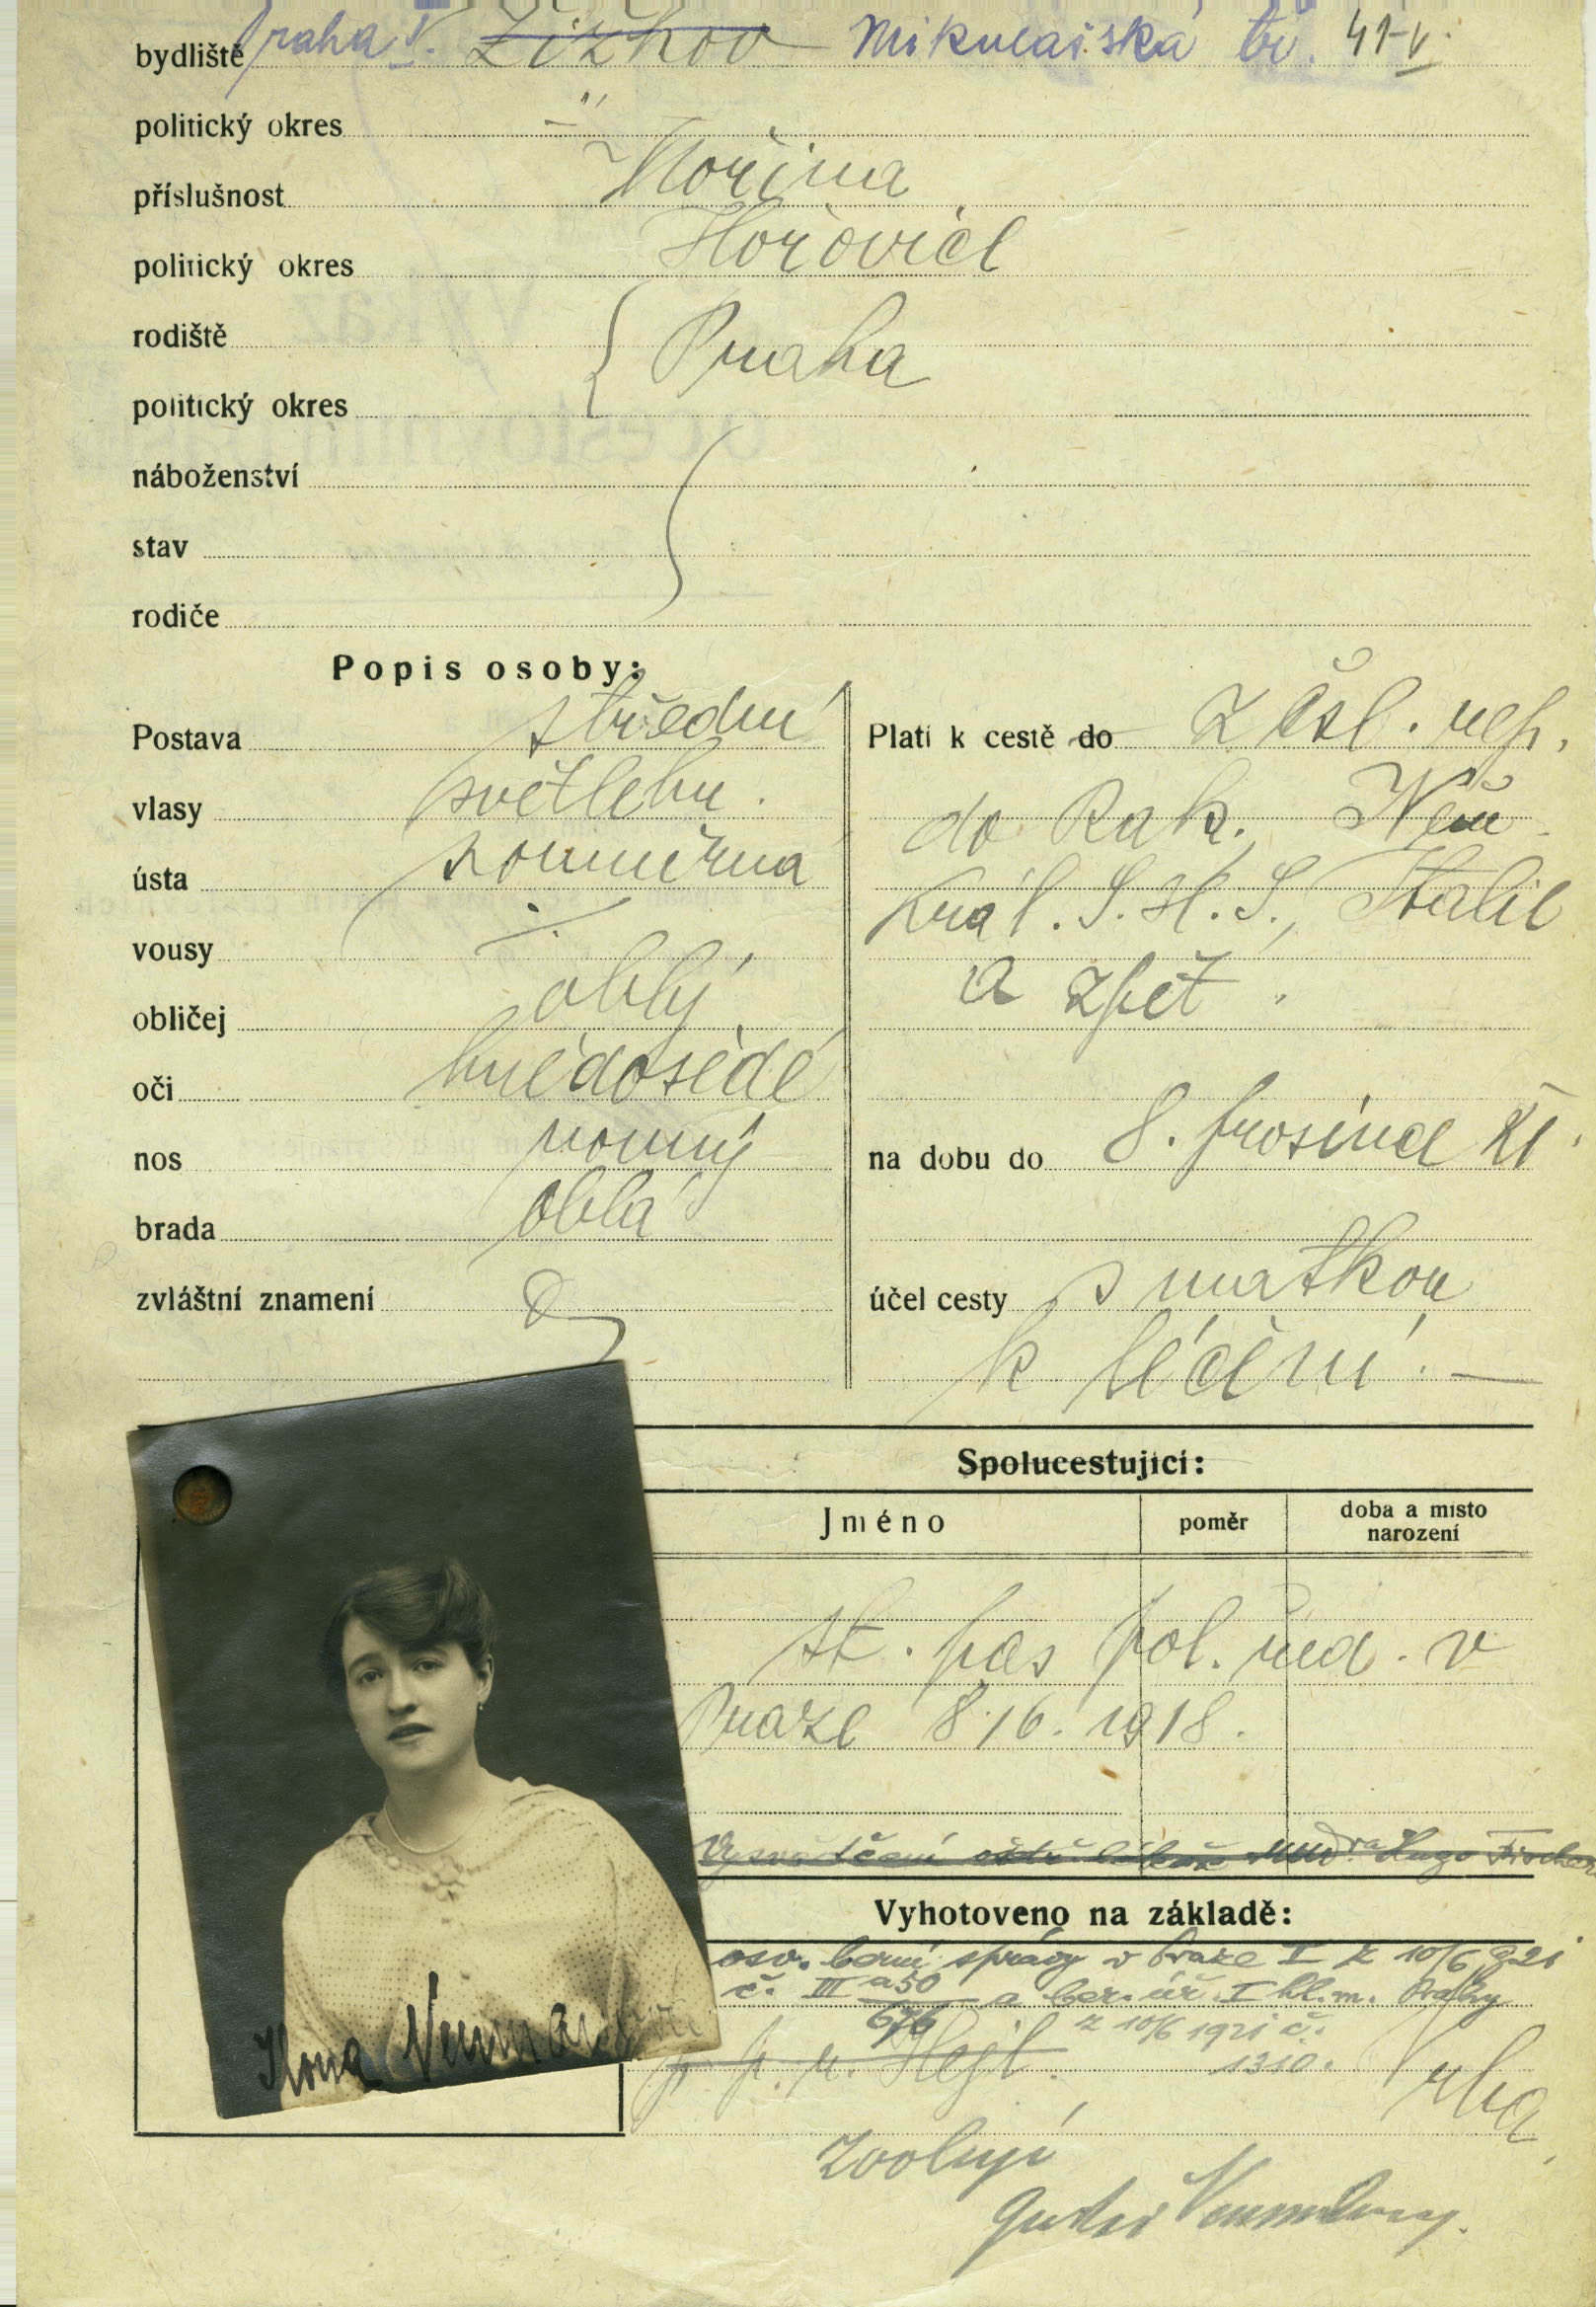 bydliště Praha V. Žižkov Mikulášská tř. 41-V.
politický okres -"-
příslušnost Mořina
politický okres Hořovice
rodiště Praha
politický okres
náboženství
stav
rodiče
Popis osoby:
Postava střední
vlasy světlehn.
ústa souměrná
vousy ./.
obličej oblý
oči hnědošedé
nos rovný
brada oblá
zvláštní znamení
Platí k cestě do z Čsl. rep.
do Rak., Něm.
Král. S. H. S., Italie
a zpět.
na dobu do 8. prosince 21.
účel cesty s matkou
k léčení. —
Spolucestující:
Jméno poměr doba a místo narození
st. pas pol. řed. v
Praze 8/6. 1918.
Vysvědčení lékaře MUDra Hugo Fischer
Vyhotoveno na základě:
osv. berní správy v Praze I z 10/6 921
č. III a50/676 a ber. úř. I hl. m. Prahy
z 10/6 1921 č. 1310.
p. p. r. Hejl. Vrba
Ilona Neumannová
svoluji
Neumann